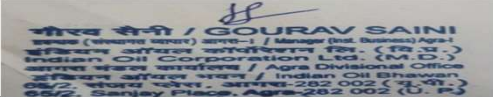 गौरव सैनी / GOURAV SAINI
सहायक (संस्थागत व्यापार) आगरा-I / Manager (Inst. Business) Agra-I
इंडियन ऑयल कार्पोरेशन लि. (वि.प्र.)
Indian Oil Corporation Ltd. (M.D.)
आगरा मंडल कार्यालय / Agra Divisional Office
इंडियन ऑयल भवन / Indian Oil Bhawan
65/2, संजय प्लेस, आगरा-282 002 (उ.प्र.)
65/2, Sanjay Place, Agra-282 002 (U.P.)